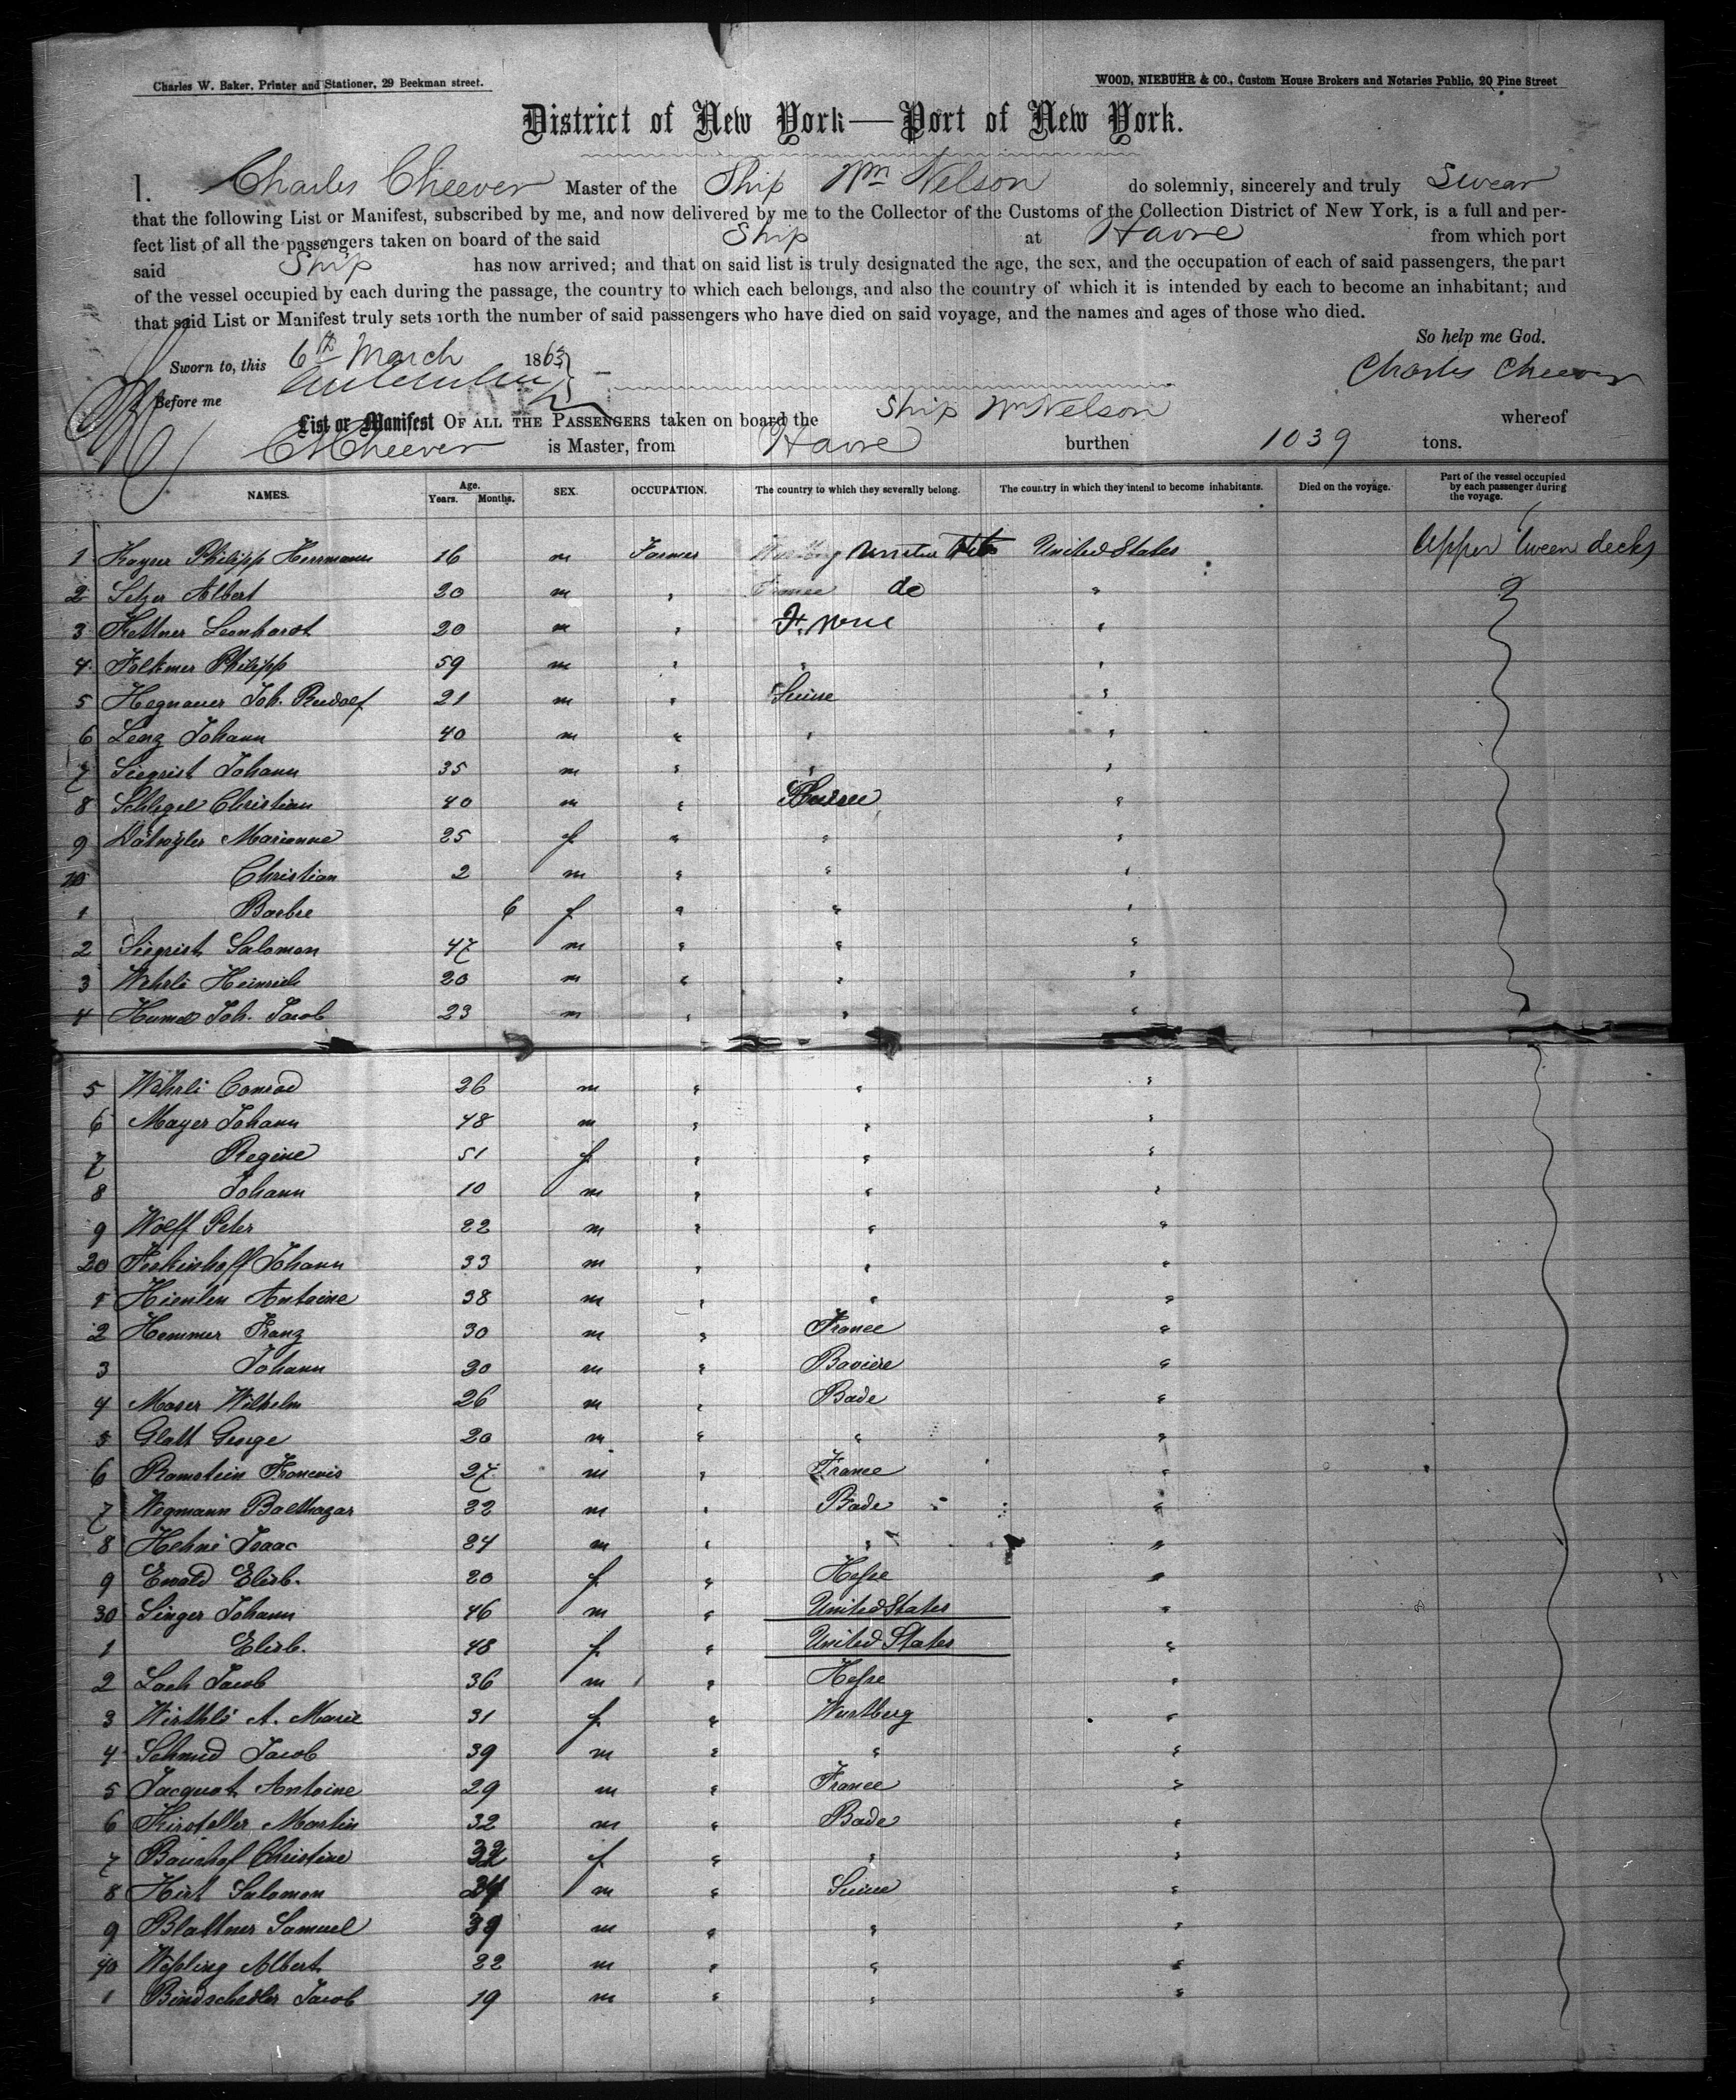 Charles W. Baker, Printer and Stationer, 29 Beekman street.
WOOD, NIEBUHR & CO., Custom House Brokers and Notaries Public, 20 Pine Street
District of New York—Port of New York.
I. Charles Cheever Master of the Ship Wm Nelson do solemnly, sincerely and truly Swear
that the following List or Manifest, subscribed by me, and now delivered by me to the Collector of the Customs of the Collection District of New York, is a full and per-
fect list of all the passengers taken on board of the said Ship at Havre from which port
said Ship has now arrived; and that on said list is truly designated the age, the sex, and the occupation of each of said passengers, the part
of the vessel occupied by each during the passage, the country to which each belongs, and also the country of which it is intended by each to become an inhabitant; and
that said List or Manifest truly sets forth the number of said passengers who have died on said voyage, and the names and ages of those who died.
So help me God.
Sworn to, this 6th March 1863
Charles Cheever
Before me
List or Manifest OF ALL THE PASSENGERS taken on board the Ship Wm Nelson whereof
C Cheever is Master, from Havre burthen 1039 tons.
NAMES. Age. Years. Months. SEX. OCCUPATION. The country to which they severally belong. The country in which they intend to become inhabitants. Died on the voyage. Part of the vessel occupied by each passenger during the voyage.
1 Kayser Philipp Herrmann 16 m Farmer United States Upper tween decks
2 Setzer Albert 20 m " France do "
3 Kettner Leonhardt 20 m " "
4 Folkmer Philipp 59 m " " "
5 Hegnauer Joh. Rudolf 21 m " Suisse "
6 Lenz Johann 40 m " " "
7 Siegrist Johann 35 m " " "
8 Schlegel Christian 40 m " Suisse "
9 Dätwyler Marianne 25 f " " "
10 Christian 2 m " " "
1 Barbe 6 f " " "
2 Siegrist Salomon 47 m " " "
3 Wehrli Heinrich 20 m " " "
4 Joh. Jacob 23 m " " "
5 Wehrli Conrad 26 m " " "
6 Mayer Johann 48 m " " "
7 Regine 51 f " " "
8 Johann 10 m " " "
9 Wolff Peter 22 m " " "
20 Johann 33 m " " "
1 Hienlen Antoine 38 m " " "
2 Hemmer Franz 30 m " France "
3 Johann 20 m " Bavière "
4 Moser Wilhelm 26 m " Bade "
5 Glatt George 20 m " " "
6 Ramstein Francois 27 m " France "
7 Wegmann Balthazar 22 m " Bade "
8 Hehni Isaac 24 m " " "
9 Ewald Elisb. 20 f " Hesse "
30 Singer Johann 46 m " United States "
1 Elisb. 48 f " United States "
2 Lach Jacob 36 m " Hesse "
3 Wirthli A. Marie 31 f " Wurtberg "
4 Schmid Jacob 39 m " " "
5 Jacquot Antoine 29 m " France "
6 Martin 32 m " Bade "
7 Bauhof Christine 32 f " " "
8 Hirt Salomon 24 m " Suisse "
9 Blattner Samuel 39 m " " "
40 Wessling Albert 22 m " " "
1 Bindschedler Jacob 19 m " " "